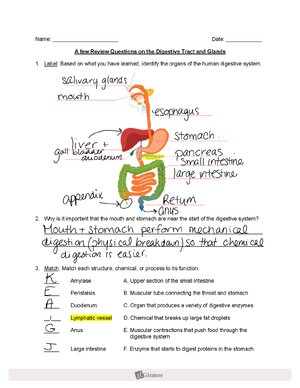 Name: ____________________ Date: ____________
A few Review Questions on the Digestive Tract and Glands
1. Label: Based on what you have learned, identify the organs of the human digestive system.
salivary glands
mouth
esophagus
stomach
liver +
gall bladder
duodenum
pancreas
small intestine
large intestine
appendix
Retum
anus
2. Why is it important that the mouth and stomach are near the start of the digestive system?
Mouth + stomach perform mechanical
digestion (physical breakdown) so that chemical
digestion is easier.
3. Match: Match each structure, chemical, or process to its function:
K Amylase A. Upper section of the small intestine
E Peristalsis B. Muscular tube connecting the throat and stomach
A Duodenum C. Organ that produces a variety of digestive enzymes
I Lymphatic vessel D. Chemical that breaks up large fat droplets
G Anus E. Muscular contractions that push food through the
digestive system
J Large intestine F. Enzyme that starts to digest proteins in the stomach
Gizmos